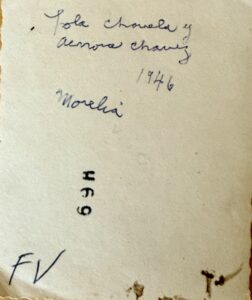 Tola chavela y
chavez
1946
Morelia
H69
FV